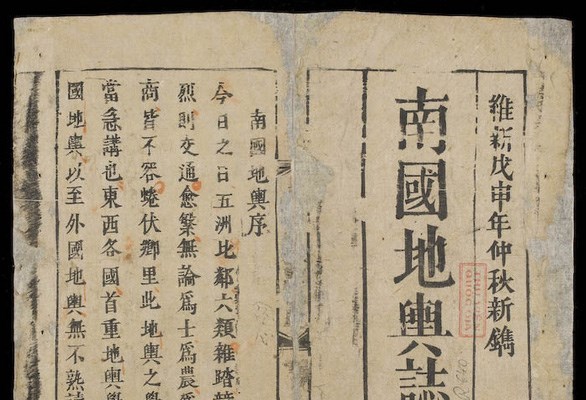 維新戊申年仲秋新鐫
南國地輿誌
南國地輿序
今日之日五洲比鄰六類雜踏競
烈則交通愈繁無論爲士爲農爲
商皆不容蜷伏鄉里此地輿之學
當急講也東西各國首重地輿學
國地輿以至外國地輿無不熟誌